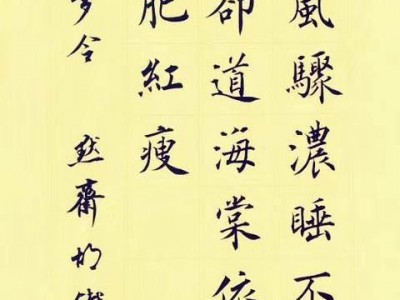 風驟濃睡不
卻道海棠依
肥紅瘦
令 默齋